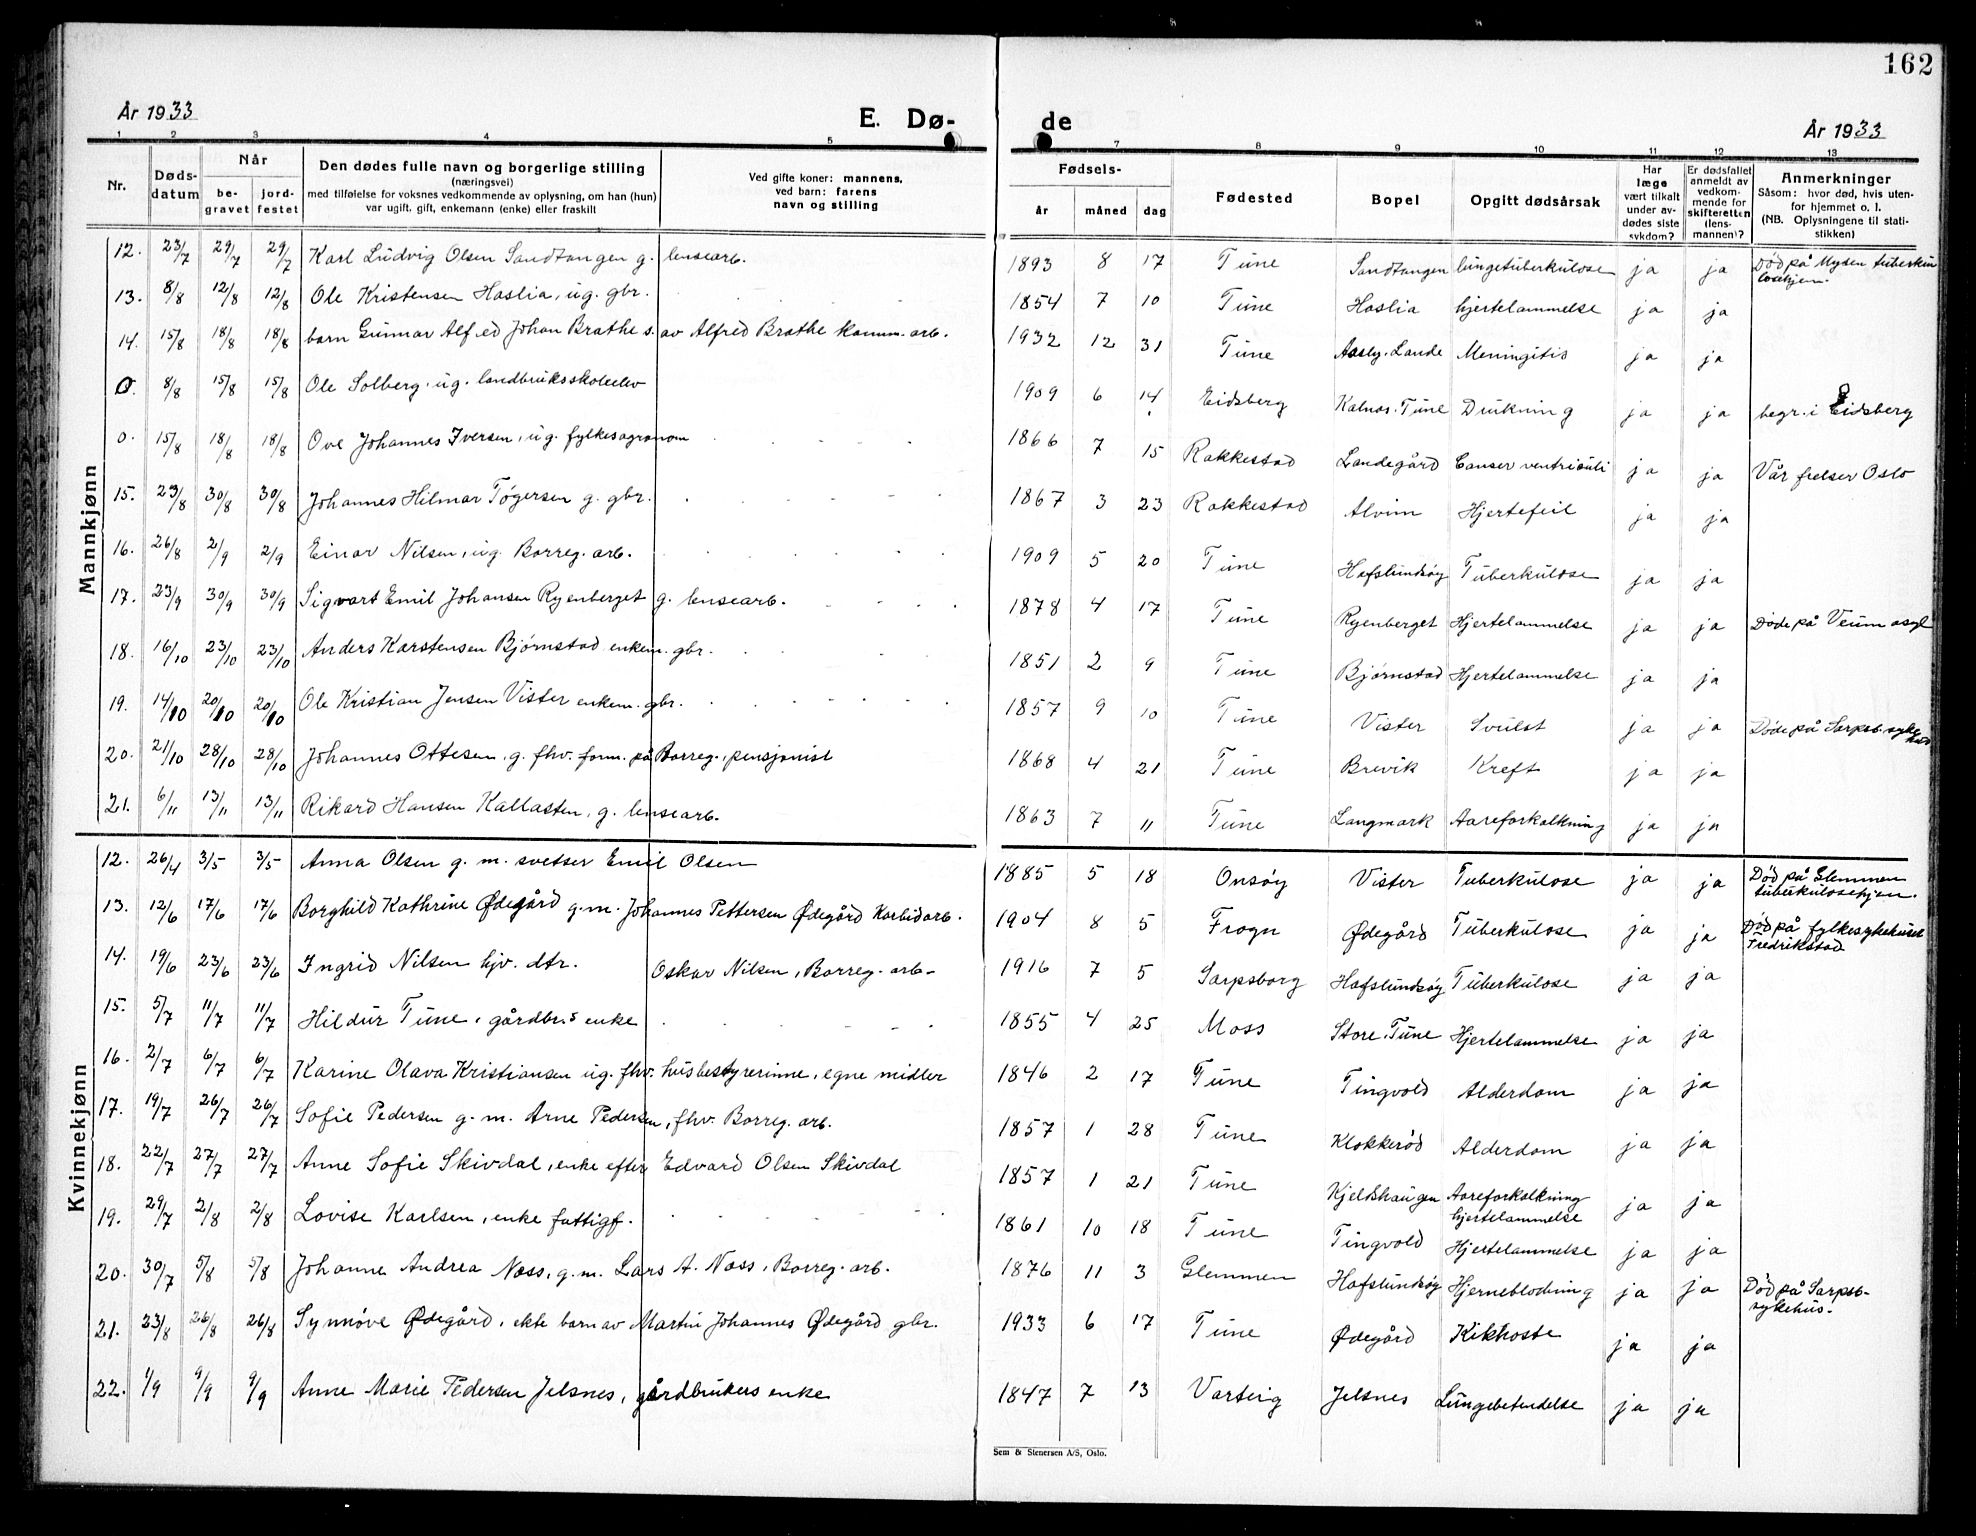 162
År 1933
E. Dø-
de
År 1933
1 2 3 4 5 7 8 9 10 11 12 13
Nr.
Døds-
datum
Når
be-
gravet
jord-
festet
Den dødes fulle navn og borgerlige stilling
(næringsvei)
med tilføielse for voksnes vedkommende av oplysning, om han (hun)
var ugift, gift, enkemann (enke) eller fraskilt
Ved gifte koner: mannens,
ved barn: farens
navn og stilling
Fødsels-
år måned dag
Fødested
Bopel
Opgitt dødsårsak
Har
læge
vært tilkalt
under av-
dødes siste
sykdom?
Er dødsfallet
anmeldt av
vedkom-
mende for
skifteretten
(lens-
mannen)?
Anmerkninger
Såsom: hvor død, hvis uten-
for hjemmet o. l.
(NB. Oplysningene til stati-
stikken)
Mannkjønn
12. 23/7 29/7 29/7 Karl Ludvig Olsen Sandtangen g. lensearb. 1893 8 17 Tune Sandtangen lungetuberkulose ja ja Død på Mysen tuberku
losehjem.
13. 8/8 12/8 12/8 Ole Kristensen Haslia, ug. gbr. 1854 7 10 Tune Haslia hjertelammelse ja ja
14. 15/8 18/8 18/8 barn Gunnar Alf.ed Johan Brathe s. av Alfred Brathe komm. arb. 1932 12 31 Tune Aasly. Lande Meningitis ja ja
0. 8/8 15/8 15/8 Ole Solberg. ug. landbruksskoleelev 1909 6 14 Eidsberg Kalnes. Tune Drukning ja ja begr. i Eidsberg
0. 15/8 18/8 18/8 Ove Johannes Iversen, ug. fylkesagronom 1866 7 15 Rakkestad Landegård Canser ventriculi ja ja Vår frelser Oslo
15. 23/8 30/8 30/8 Johannes Hilmar Tøgersen g. gbr. 1867 3 23 Rakkestad Alvim Hjertefeil ja ja
16. 26/8 2/9 2/9 Einar Nilsen, ug. Borreg. arb. 1909 5 20 Tune Hafslundsøy Tuberkulose ja ja
17. 23/9 30/9 30/9 Sigvart Emil Johansen Ryenberget g. lensearb. 1878 4 17 Tune Ryenberget Hjertelammelse ja ja Døde på Veum asyl
18. 16/10 23/10 23/10 Anders Karstensen Bjørnstad enkem. gbr. 1851 2 9 Tune Bjørnstad Hjertelammelse ja ja
19. 14/10 20/10 20/10 Ole Kristian Jensen Vister enkem. gbr. 1857 9 10 Tune Vister Svulst ja ja Døde på Sarpsb. sykehus
20. 21/10 28/10 28/10 Johannes Ottesen, g. fhv. form. på Borreg., pensjonist 1868 4 21 Tune Brevik Kreft ja ja
21. 6/11 13/11 13/11 Rikard Hansen Kallasten, g. lensearb. 1863 7 11 Tune Langmark Aareforkalkning ja ja
Kvinnekjønn
12. 26/4 3/5 3/5 Anna Olsen g. m. svetser Emil Olsen 1885 5 18 Onsøy Vister Tuberkulose ja ja Død på Glemmen
tuberkulosehjem.
13. 12/6 17/6 17/6 Borghild Kathrine Ødegård g. m. Johannes Pettersen Ødegård Karbidarb. 1904 8 5 Frogn Ødegård Tuberkulose ja ja Død på fylkessykehuset
Fredrikstad
14. 19/6 23/6 23/6 Ingrid Nilsen hjv. dtr. Oskar Nilsen, Borreg. arb- 1916 7 5 Sarpsborg Hafslundsøy Tuberkulose ja ja
15. 5/7 11/7 11/7 Hildur Tune, gårdbr.s enke 1855 4 25 Moss Store. Tune Hjertelammelse ja ja
16. 2/7 6/7 6/7 Karine Olava Kristiansen ug. fhv. husbestyrerinne, egne midler 1846 2 17 Tune Tingvold Alderdom ja ja
17. 19/7 26/7 26/7 Sofie Pedersen g. m. Arne Pedersen, fhv. Borreg. arb. 1857 1 28 Tune Klokkerød Alderdom ja ja
18. 22/7 27/7 27/7 Anne Sofie Skivdal, enke efter Edvard Olsen Skivdal 1857 1 21 Tune Kjeldshaugen Aareforkalkning
hjertelammelse ja ja
19. 29/7 2/8 2/8 Lovise Karlsen, enke fattigf. 1861 10 18 Tune Tingvold Hjertelammelse ja ja
20. 30/7 5/8 5/8 Johanne Andrea Næss, g. m. Lars A. Næss, Borreg. arb. 1876 11 3 Glemmen Hafslundsøy Hjerneblødning ja ja Død på Sarpsb-
sykehus.
21. 23/8 26/8 26/8 Synnøve Ødegård, ekte barn av Martin Johannes Ødegård gbr. 1933 6 17 Tune Ødegård Kikhoste ja ja
22. 1/9 9/9 9/9 Anne Marie Pedersen Jelsnes, gårdbrukers enke 1847 7 13 Varteig Jelsnes Lungebetendelse ja ja
Sem & Stenersen A/S, Oslo.